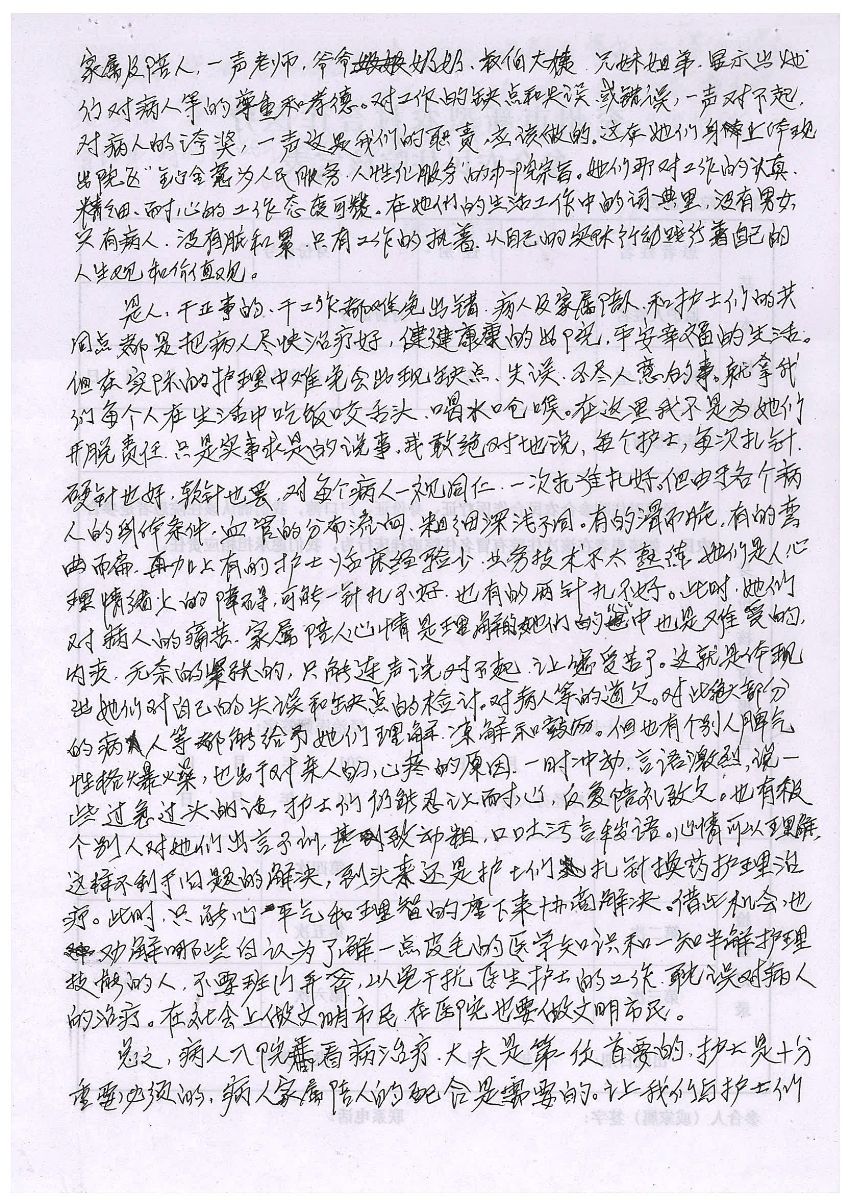 家属及陪人,一声老师,爷爷奶奶、叔伯大姨、兄妹姐弟,显示出她
们对病人等的尊重和孝德。对工作的缺点和失误或错误,一声对不起,
对病人的夸奖,一声这是我们的职责,应该做的。这在她们身体上体现
出院区“全心全意为人民服务,人性化服务”的办院宗旨。她们那对工作的认真、
精细、耐心的工作态度可赞。在她们的生活工作中的词典里,没有男女,
只有病人,没有脏和累,只有工作的执着,以自己的实际行动践行着自己的
人生观和价值观。
是人,干正事的、干工作都难免出错,病人及家属陪人,和护士们的共
同点都是把病人尽快治疗好,健健康康的出院,平安幸福的生活。
但在实际的护理中难免会出现缺点、失误、不尽人意的事。就拿我
们每个人在生活中吃饭咬舌头,喝水呛喉。在这里我不是为她们
开脱责任,只是实事求是的说事,我敢绝对地说,每个护士,每次扎针,
硬针也好,软针也罢,对每个病人一视同仁,一次扎准扎好。但由于各个病
人的身体条件,血管的分布走向,粗细深浅不同。有的滑而脆,有的弯
曲而扁,再加上有的护士临床经验少,业务技术不太熟练,她们是人心
理情绪上的障碍,可能一针扎不好,也有的两针扎不好。此时,她们
对病人的痛苦,家属陪人心情是理解的她们的心中也是难受的,
内疚、无奈的紧张的,只能连声说对不起,让您受苦了。这就是体现
出她们对自己的失误和缺点的检讨。对病人等的道欠。对此绝大部分
的病人等都能给予她们理解、谅解和鼓励。但也有个别人脾气
性格爆燥,也出于对亲人的,心疼的原因,一时冲动,言语激烈,说一
些过急过头的话,护士们仍能忍让而耐心,反复陪礼致欠。也有极
个别人对她们出言不训,甚则致动粗,口吐污言秽语。心情可以理解,
这样不利于问题的解决,到头来还是护士们扎针换药护理治
疗。此时,只能心平气和理智的坐下来协商解决。借此机会,也
劝解哪些自认为了解一点皮毛的医学知识和一知半解护理
技能的人,不要班门弄斧,以免干扰医生护士的工作,耽误对病人
的治疗。在社会上做文明市民,在医院也要做文明市民。
总之,病人入院看病治疗,大夫是第一位首要的,护士是十分
重要必须的,病人家属陪人的配合是需要的。让我们与护士们
参合人(或家属)签字: 联系电话